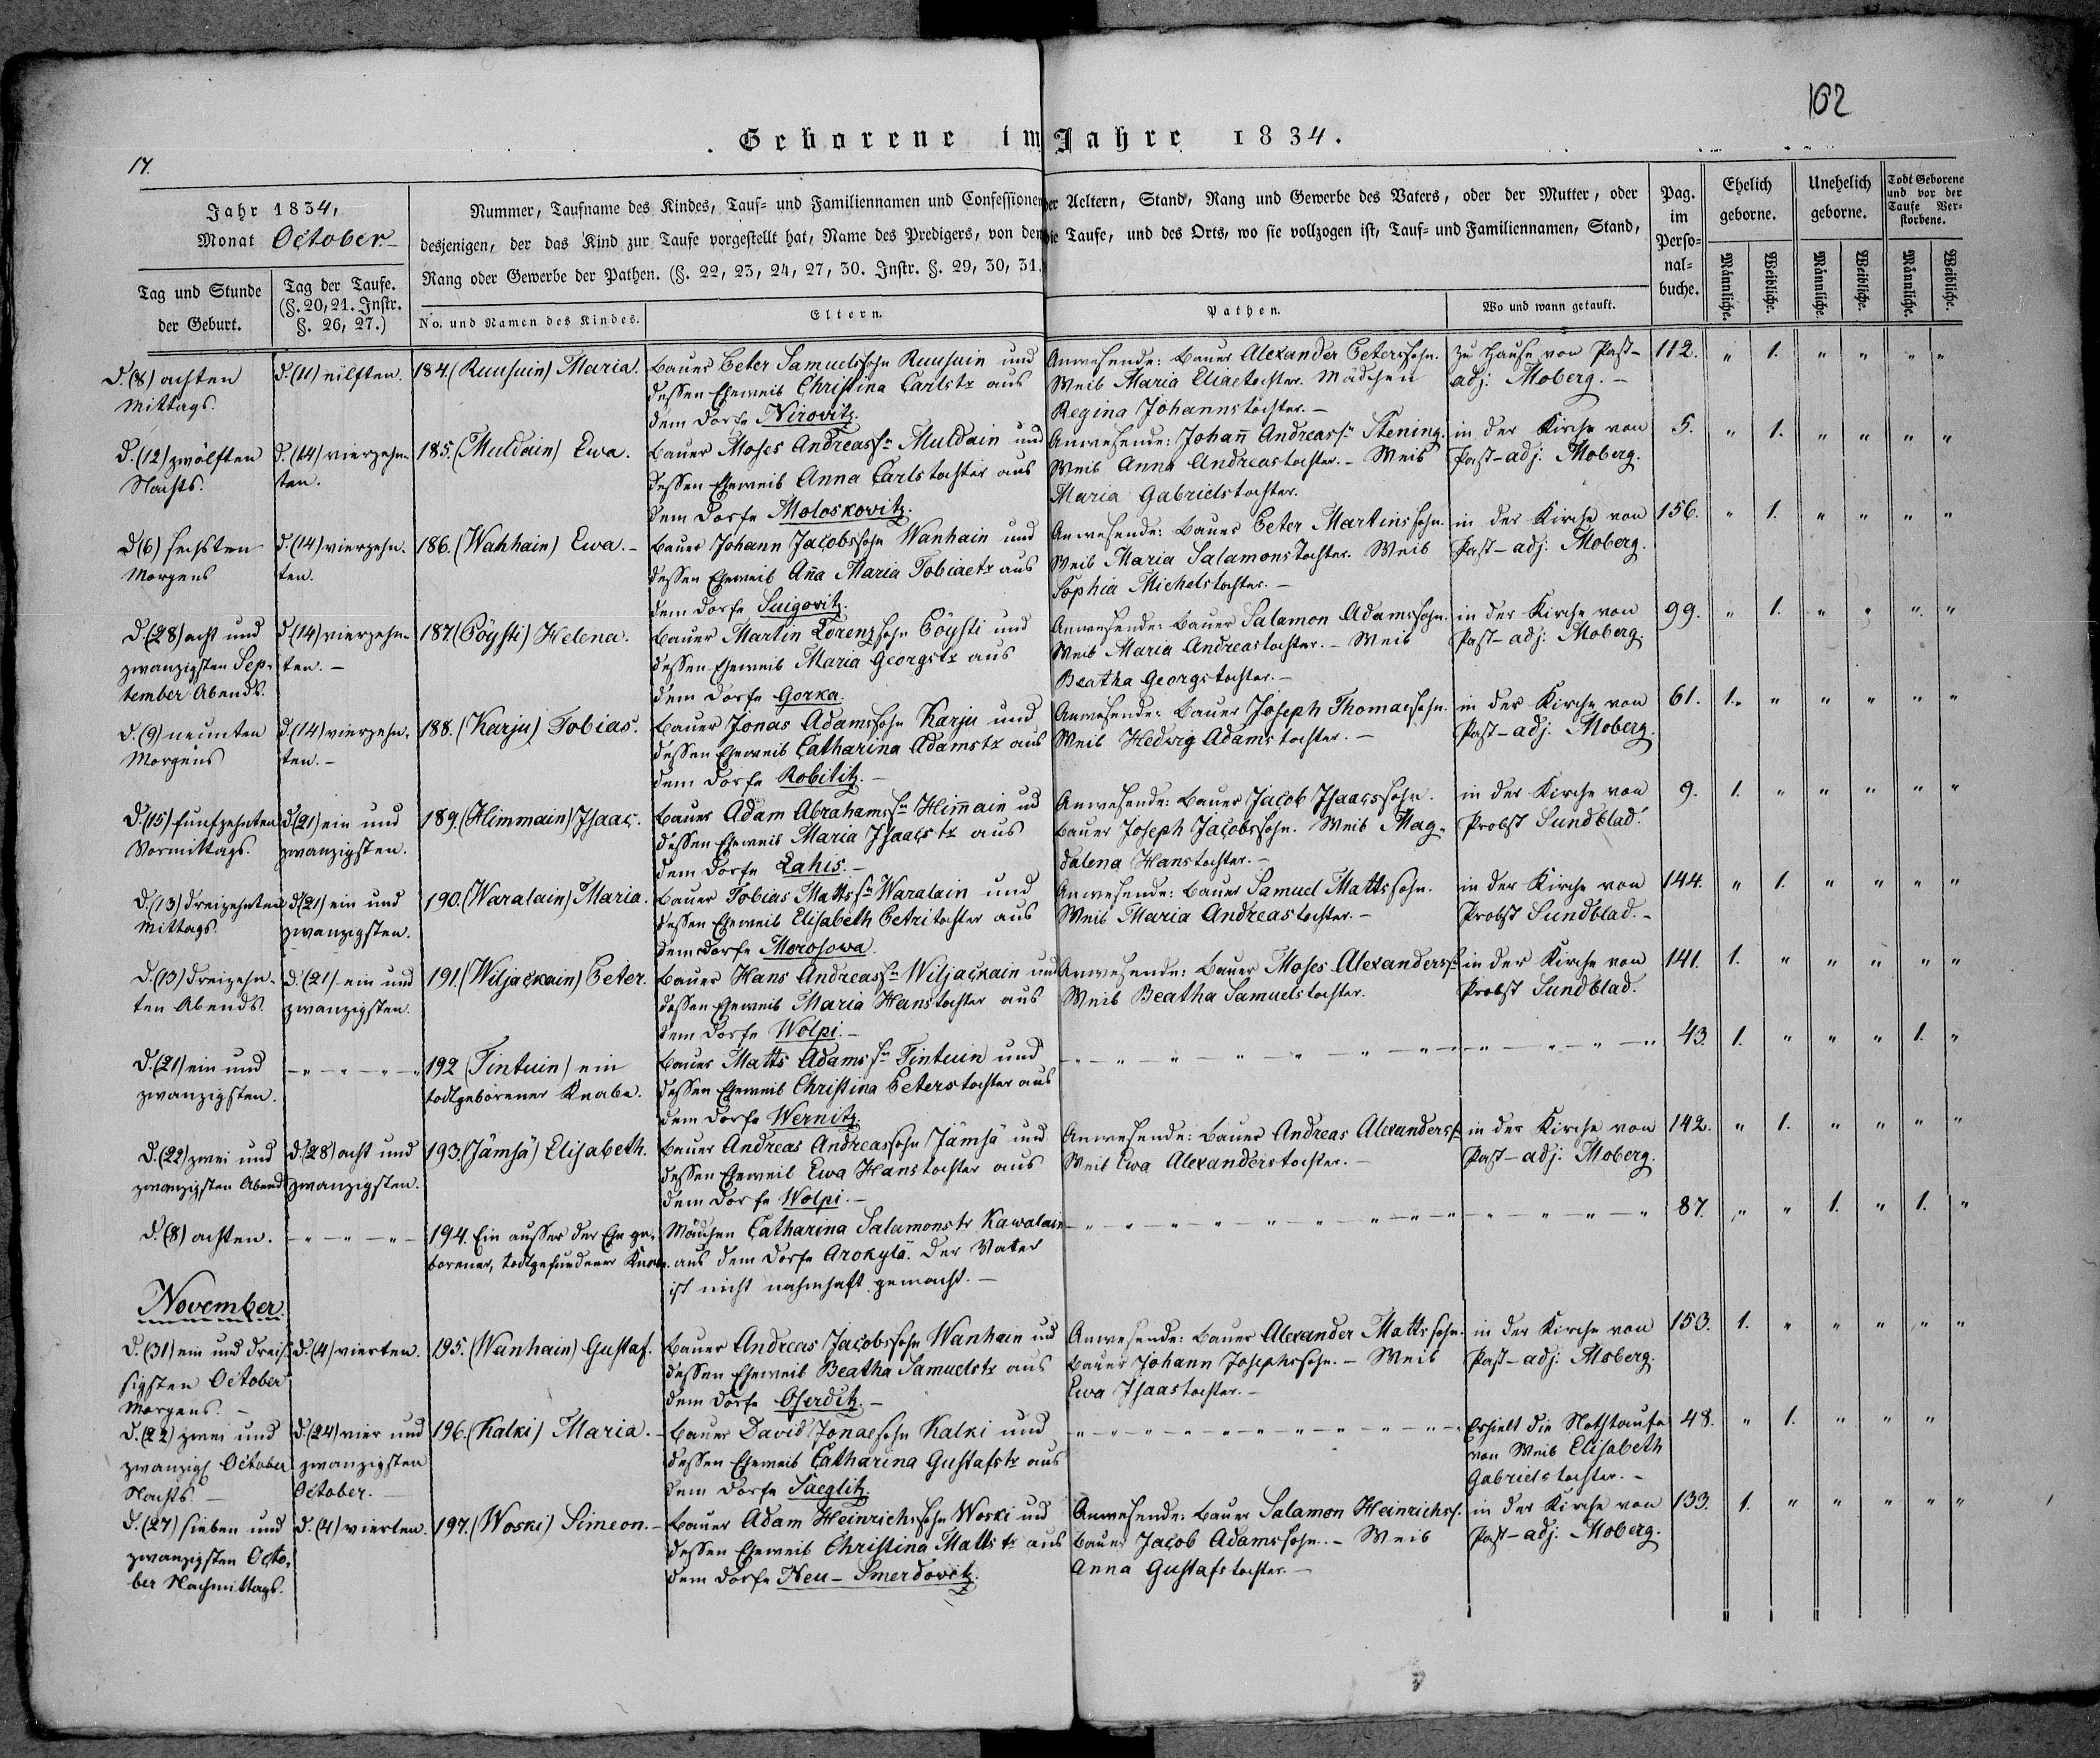 102
Geborene im Jahre 1834.
17.
Jahr 1834,
Monat October
Tag und Stunde
der Geburt.
Tag der Taufe.
(§. 20, 21. Instr.
§. 26, 27.)
Nummer, Taufname des Kindes, Tauf- und Familiennamen und Confessionen der Aeltern, Stand, Rang und Gewerbe des Vaters, oder der Mutter, oder
desjenigen, der das Kind zur Taufe vorgestellt hat, Name des Predigers, von dem die Taufe, und des Orts, wo sie vollzogen ist, Tauf- und Familiennamen, Stand,
Rang oder Gewerbe der Pathen. (§. 22, 23, 24, 27, 30. Instr. §. 29, 30, 31.
No. und Namen des Kindes.
Eltern.
Pathen.
Wo und wann getauft.
Pag.
im
Perso-
nal-
buche.
Ehelich
geborne.
Unehelich
geborne.
Todt Geborene
und vor der
Taufe Ver-
storbene.
Männliche.
Weibliche.
Männliche.
Weibliche.
Männliche.
Weibliche.
d. (8) achten
Mittags.
d. (11) eilften.
184. (Ruusuin) Maria.
Bauer Peter Samuelssohn Ruusuin und
dessen Eheweib Christina Carlstr aus
dem Dorfe Nirovitz.
Anwesende: Bauer Alexander Peterssohn.
Weib Maria Eliaetochter. Mädchen
Regina Johannstochter. –
zu Hause von Past-
adj: Moberg. –
112. " 1. " " " "
d. (12) zwölften
Nachts.
d. (14) vierzehn-
ten.
185. (Muldain) Ewa.
Bauer Moses Andreassn Muldain und
dessen Eheweib Anna Carlstochter aus
dem Dorfe Moloskovitz.
Anwesende: Johan̄ Andreassn Stening.
Weib Anna Andreastochter. – Weib
Maria Gabrielstochter.
in der Kirche von
Past-adj: Moberg.
5. " 1. " " " "
d (6) sechsten
Morgens
d. (14) vierzehn-
ten.
186. (Wanhain) Ewa. –
Bauer Johann Jacobssohn Wanhain und
dessen Eheweib An̄a Maria Tobiaetr aus
dem Dorfe Suigovitz.
Anwesende: Bauer Peter Martinssohn.
Weib Maria Salamonstochter. Weib
Sophia Michelstochter. –
in der Kirche von
Past-adj: Moberg.
156. " 1. " " " "
d. (28) acht und
zwanzigsten Sep-
tember Abends.
d (14) vierzehn-
ten. –
187. (Pöysti) Helena.
Bauer Martin Lorenzsohn Pöysti und
dessen Eheweib Maria Georgstr aus
dem Dorfe Gorka.
Anwesende: Bauer Salamon Adamssohn.
Weib Maria Andreastochter. – Weib
Beatha Georgstochter. –
in der Kirche von
Past-adj: Moberg.
99. " 1. " " " "
d. (9) neunten
Morgens
d. (14) vierzehn-
ten. –
188. (Karju) Tobias.
Bauer Jonas Adamssohn Karju und
dessen Eheweib Catharina Adamstr aus
dem Dorfe Robititz. –
Anwesende: Bauer Joseph Thomaesohn.
Weib Hedwig Adamstochter. –
in der Kirche von
Past-adj: Moberg.
61. 1. " " " " "
d. (15) funfzehnten
Vormittags.
d. (21) ein und
zwanzigsten.
189. (Himmain) Isaac.
Bauer Adam Abrahamssn Him̄ain und
dessen Eheweib Maria Isaacstr aus
dem Dorfe Lahis. –
Anwesende: Bauer Jacob Isaacssohn.
Bauer Joseph Jacobssohn. Weib Mag-
dalena Hanstochter. –
in der Kirche von
Probst Sundblad.
9. 1. " " " " "
d. (13) dreizehnten
Mittags.
d. (21) ein und
zwanzigsten.
190. (Waralain) Maria.
Bauer Tobias Mattssn Waralain und
dessen Eheweib Elisabeth Petritochter aus
dem Dorfe Morosowa.
Anwesende: Bauer Samuel Mattssohn.
Weib Maria Andreastochter. –
in der Kirche von
Probst Sundblad. –
144. " 1. " " " "
d. (13) dreizehn-
ten Abends.
d. (21) ein und
zwanzigsten.
191. (Wiljackain) Peter.
Bauer Hans Andreassn Wiljackain und
dessen Eheweib Maria Hanstochter aus
dem Dorfe Wolpi. –
Anwesende: Bauer Moses Alexanderss.
Weib Beatha Samuelstochter.
in der Kirche von
Probst Sundblad.
141. 1. " " " " "
d. (21) ein und
zwanzigsten.
– " – " – " – "
192 (Tintuin) ein
todtgeborener Knabe.
Bauer Matts Adamssn Tintuin und
dessen Eheweib Christina Peterstochter aus
dem Dorfe Wernitz.
– " – " – " – " – " – " – " – " – " – " – "
43. 1. " " " 1. "
d. (22) zwei und
zwanzigsten Abend
d. (28) acht und
zwanzigsten.
193. (Jämsä) Elisabeth.
Bauer Andreas Andreassohn Jämsä und
dessen Eheweib Ewa Hanstochter aus
dem Dorfe Wolpi. –
Anwesende: Bauer Andreas Alexanderss.
Weib Ewa Alexanderstochter. –
in der Kirche von
Past-adj: Moberg.
142. " 1. " " " "
d. (8) achten.
– " – " – " –
194. Ein ausser der Ehe ge-
borener, todtgefundener Knabe.
Mädchen Catharina Salamonstr Kawalain
aus dem Dorfe Arokylä. Der Vater
ist nicht nahmhaft gemacht. –
– " – " – " – " – " – " – " – " – " – " – "
87. " " 1. " 1. "
November.
d. (31) ein und dreis-
sigsten October
Morgens. –
d. (4) vierten.
195. (Wanhain) Gustaf.
Bauer Andreas Jacobssohn Wanhain und
dessen Eheweib Beatha Samuelstr aus
dem Dorfe Oserditz. –
Anwesende: Bauer Alexander Mattssohn.
Bauer Johann Josephssohn. – Weib
Ewa Isaastochter. –
in der Kirche von
Past-adj: Moberg.
153. 1. " " " " "
d. (22) zwei und
zwanzigs October
Nachts. –
d. (24) vier und
zwanzigsten
October.
196. (Kalki) Maria. –
Bauer David Jonaesohn Kalki und
dessen Eheweib Catharina Gustafstr aus
dem Dorfe Saeglitz.
" – " – " – " – " – " – " – " – " – " –
Erhielt die Nothtaufe
von Weib Elisabeth
Gabrielstochter. –
48. " 1. " " "
d. (27) sieben und
zwanzigsten Octo-
ber Nachmittags.
d. (4) vierten.
197. (Woski) Simeon. –
Bauer Adam Heinrichssohn Woski und
dessen Eheweib Christina Mattstr aus
dem Dorfe Neu-Smerdovitz.
Anwesende: Bauer Salamon Heinrichss.
Bauer Jacob Adamssohn. – Weib
Anna Gustafstochter. –
in der Kirche von
Past-adj: Moberg.
133. 1. " " " " "